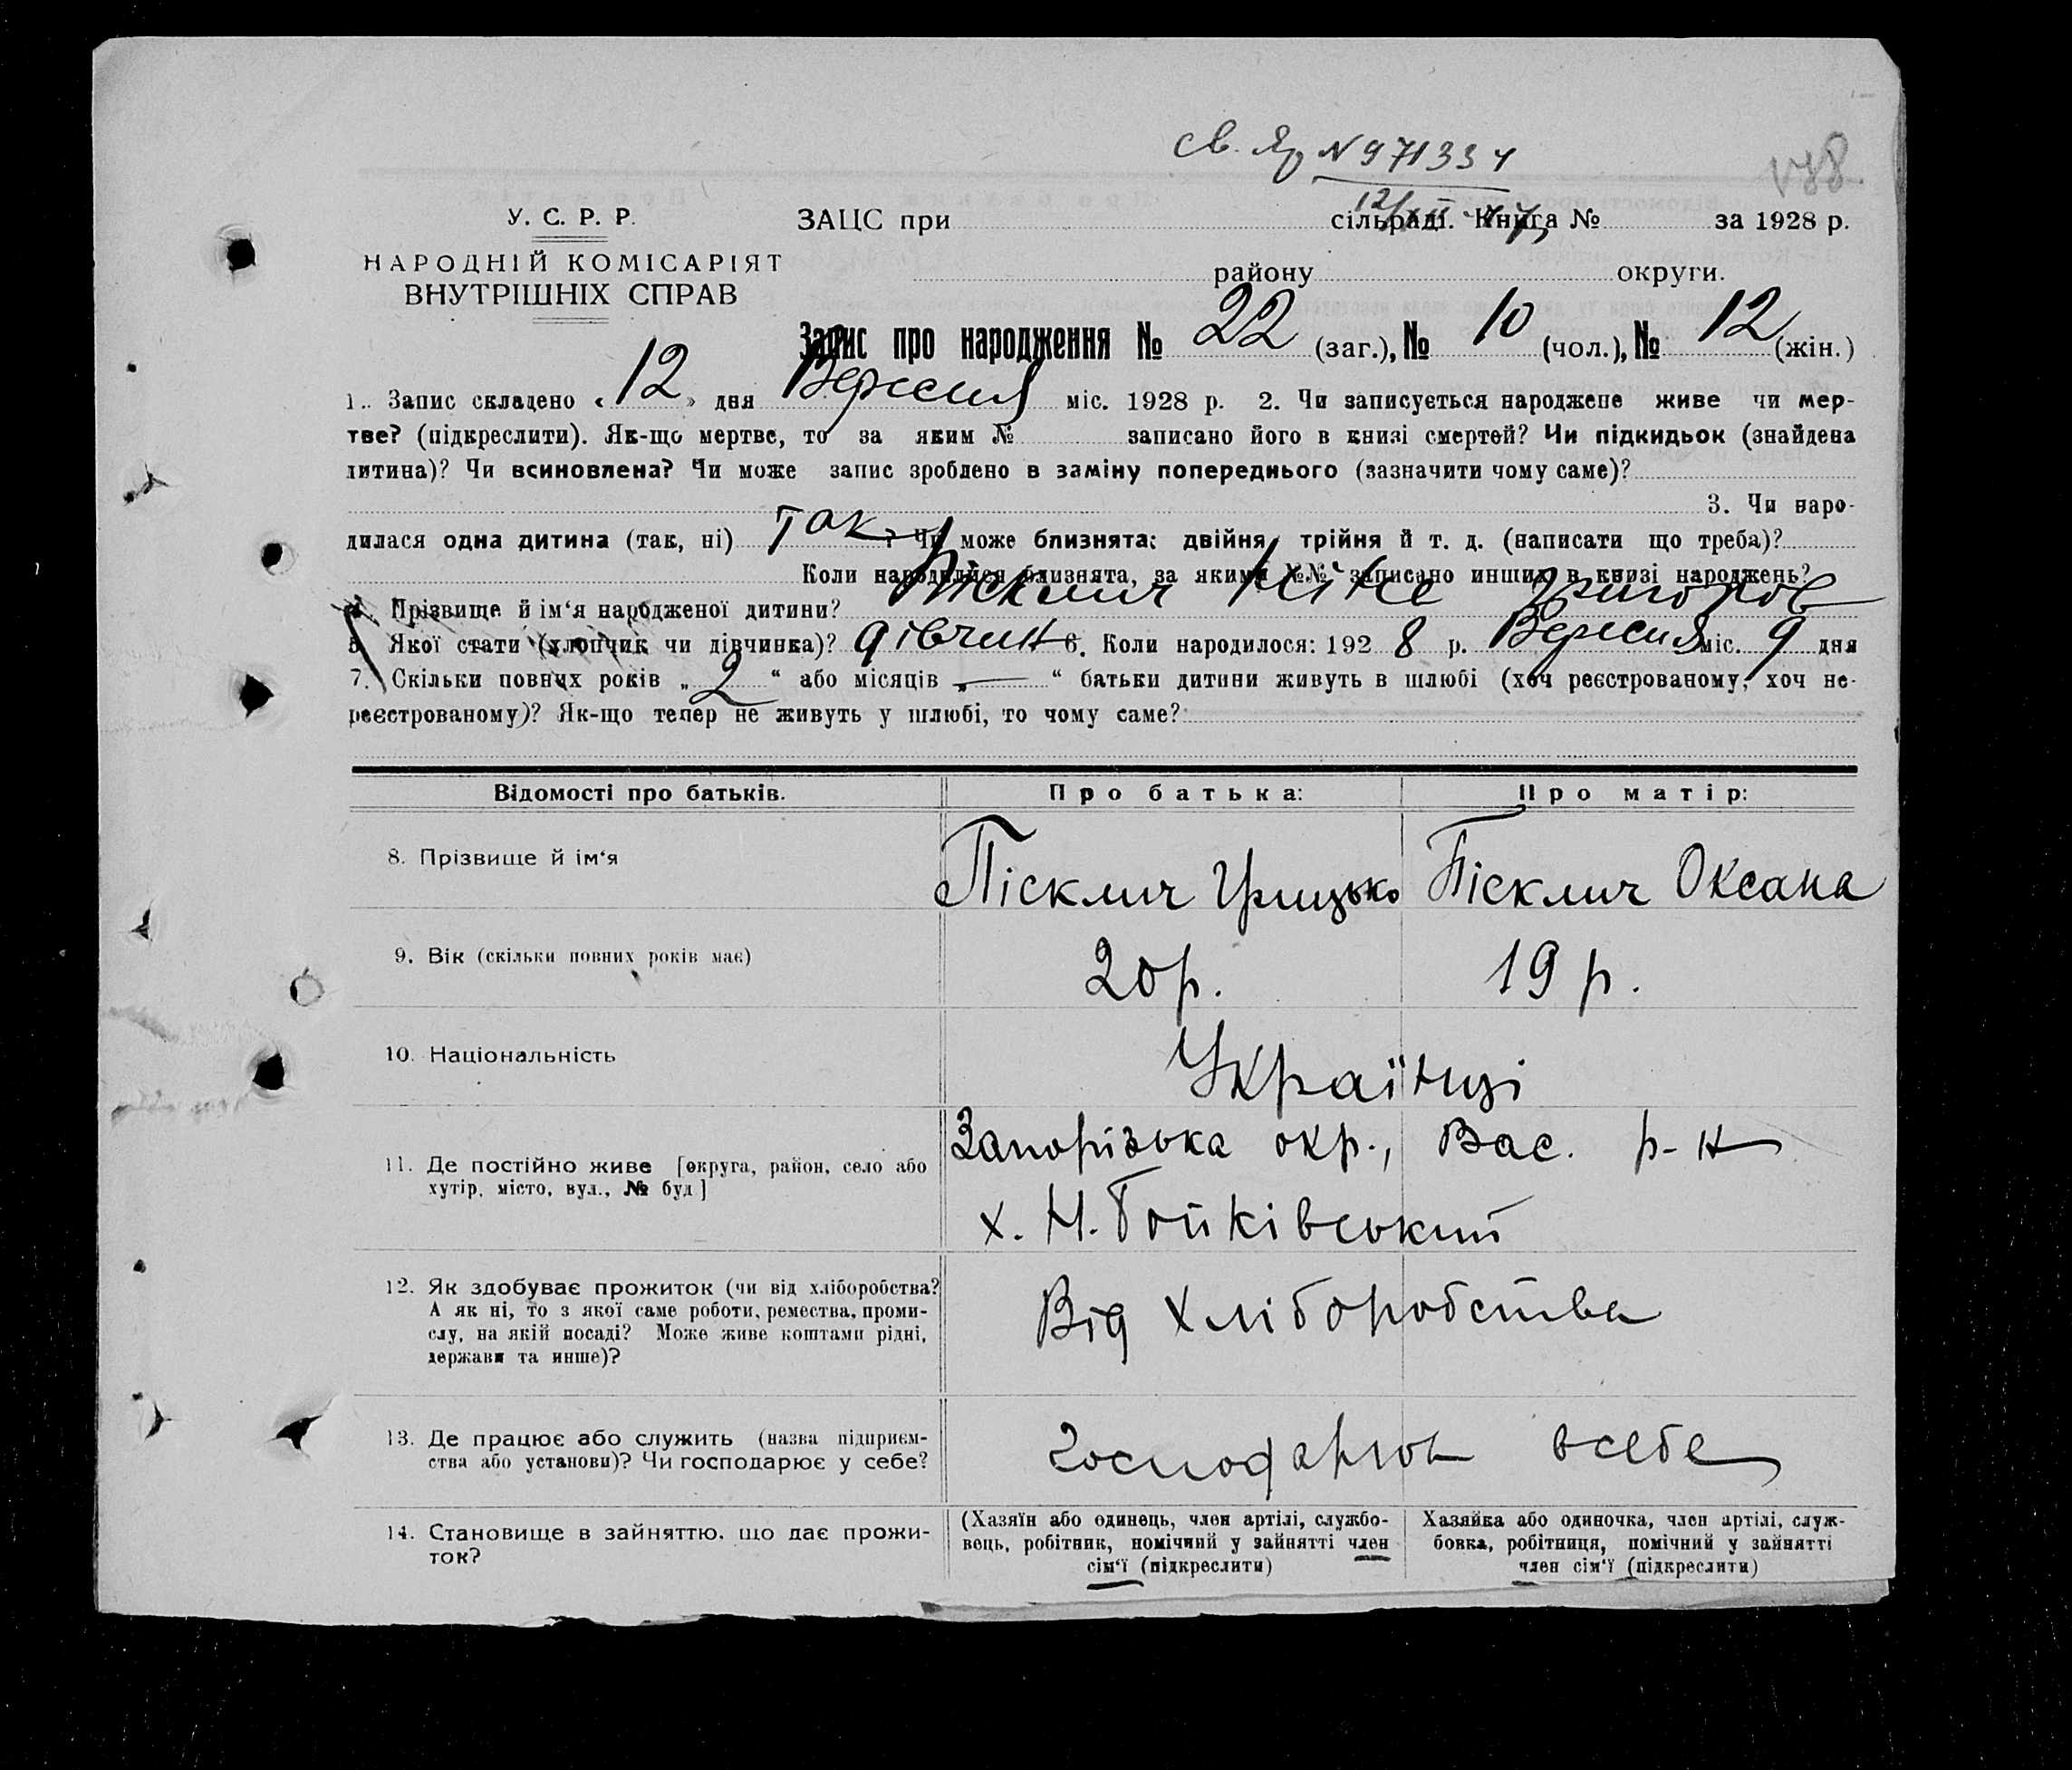 св. Яр N 971334
138
12/XII
У. С. Р. Р.
НАРОДНІЙ КОМІСАРІЯТ
ВНУТРІШНІХ СПРАВ
ЗАЦС при сільраді. Книга № за 1928 р.
району округи.
Запис про народження № 22 (заг.), № 10 (чол.), № 12 (жін.)
1. Запис складено « 12 » дня Вересня міс. 1928 р. 2. Чи записується народжене живе чи мер-
тве? (підкреслити). Як-що мертве, то за яким № записано його в книзі смертей? Чи підкидьок (знайдена
дитина)? Чи всиновлена? Чи може запис зроблено в заміну попереднього (зазначити чому саме)?
3. Чи наро-
дилася одна дитина (так, ні) Так ? Чи може близнята: двійня, трійня й т. д. (написати що треба)?
Коли народилися близнята, за якими №№ записано инших в книзі народжень?
4. Прізвище й ім‘я народженої дитини? Пісклич Ніна Григоров
5. Якої стати (хлопчик чи дівчинка)? дівчин 6. Коли народилося: 1928 р. Вересня міс. 9 дня
7. Скільки повних років „ 2 “ або місяців „ — “ батьки дитини живуть в шлюбі (хоч реєстрованому, хоч не-
реєстрованому)? Як-що тепер не живуть у шлюбі, то чому саме?
Відомості про батьків. Про батька: Про матір:
8. Прізвище й ім‘я Пісклич Грицько Пісклич Оксана
9. Вік (скільки повних років має) 20 р. 19 р.
10. Національність Українці
11. Де постійно живе [округа, район, село або
хутір, місто, вул., № буд.]
Запорізька окр., Вас. р-н
х. Н. Бойківський
12. Як здобуває прожиток (чи від хліборобства?
А як ні, то з якої саме роботи, ремества, проми-
слу, на якій посаді? Може живе коштами рідні,
держави та инше)?
Від хліборобства
13. Де працює або служить (назва підприєм-
ства або установи)? Чи господарює у себе?
Господарюв всебе
14. Становище в зайняттю, що дає прожи-
ток?
(Хазяїн або одинець, член артілі, службо-
вець, робітник, помічний у зайнятті член
сім‘ї (підкреслити)
Хазяйка або одиночка, член артілі, служ-
бовка, робітниця, помічний у зайнятті
член сім‘ї (підкреслити)